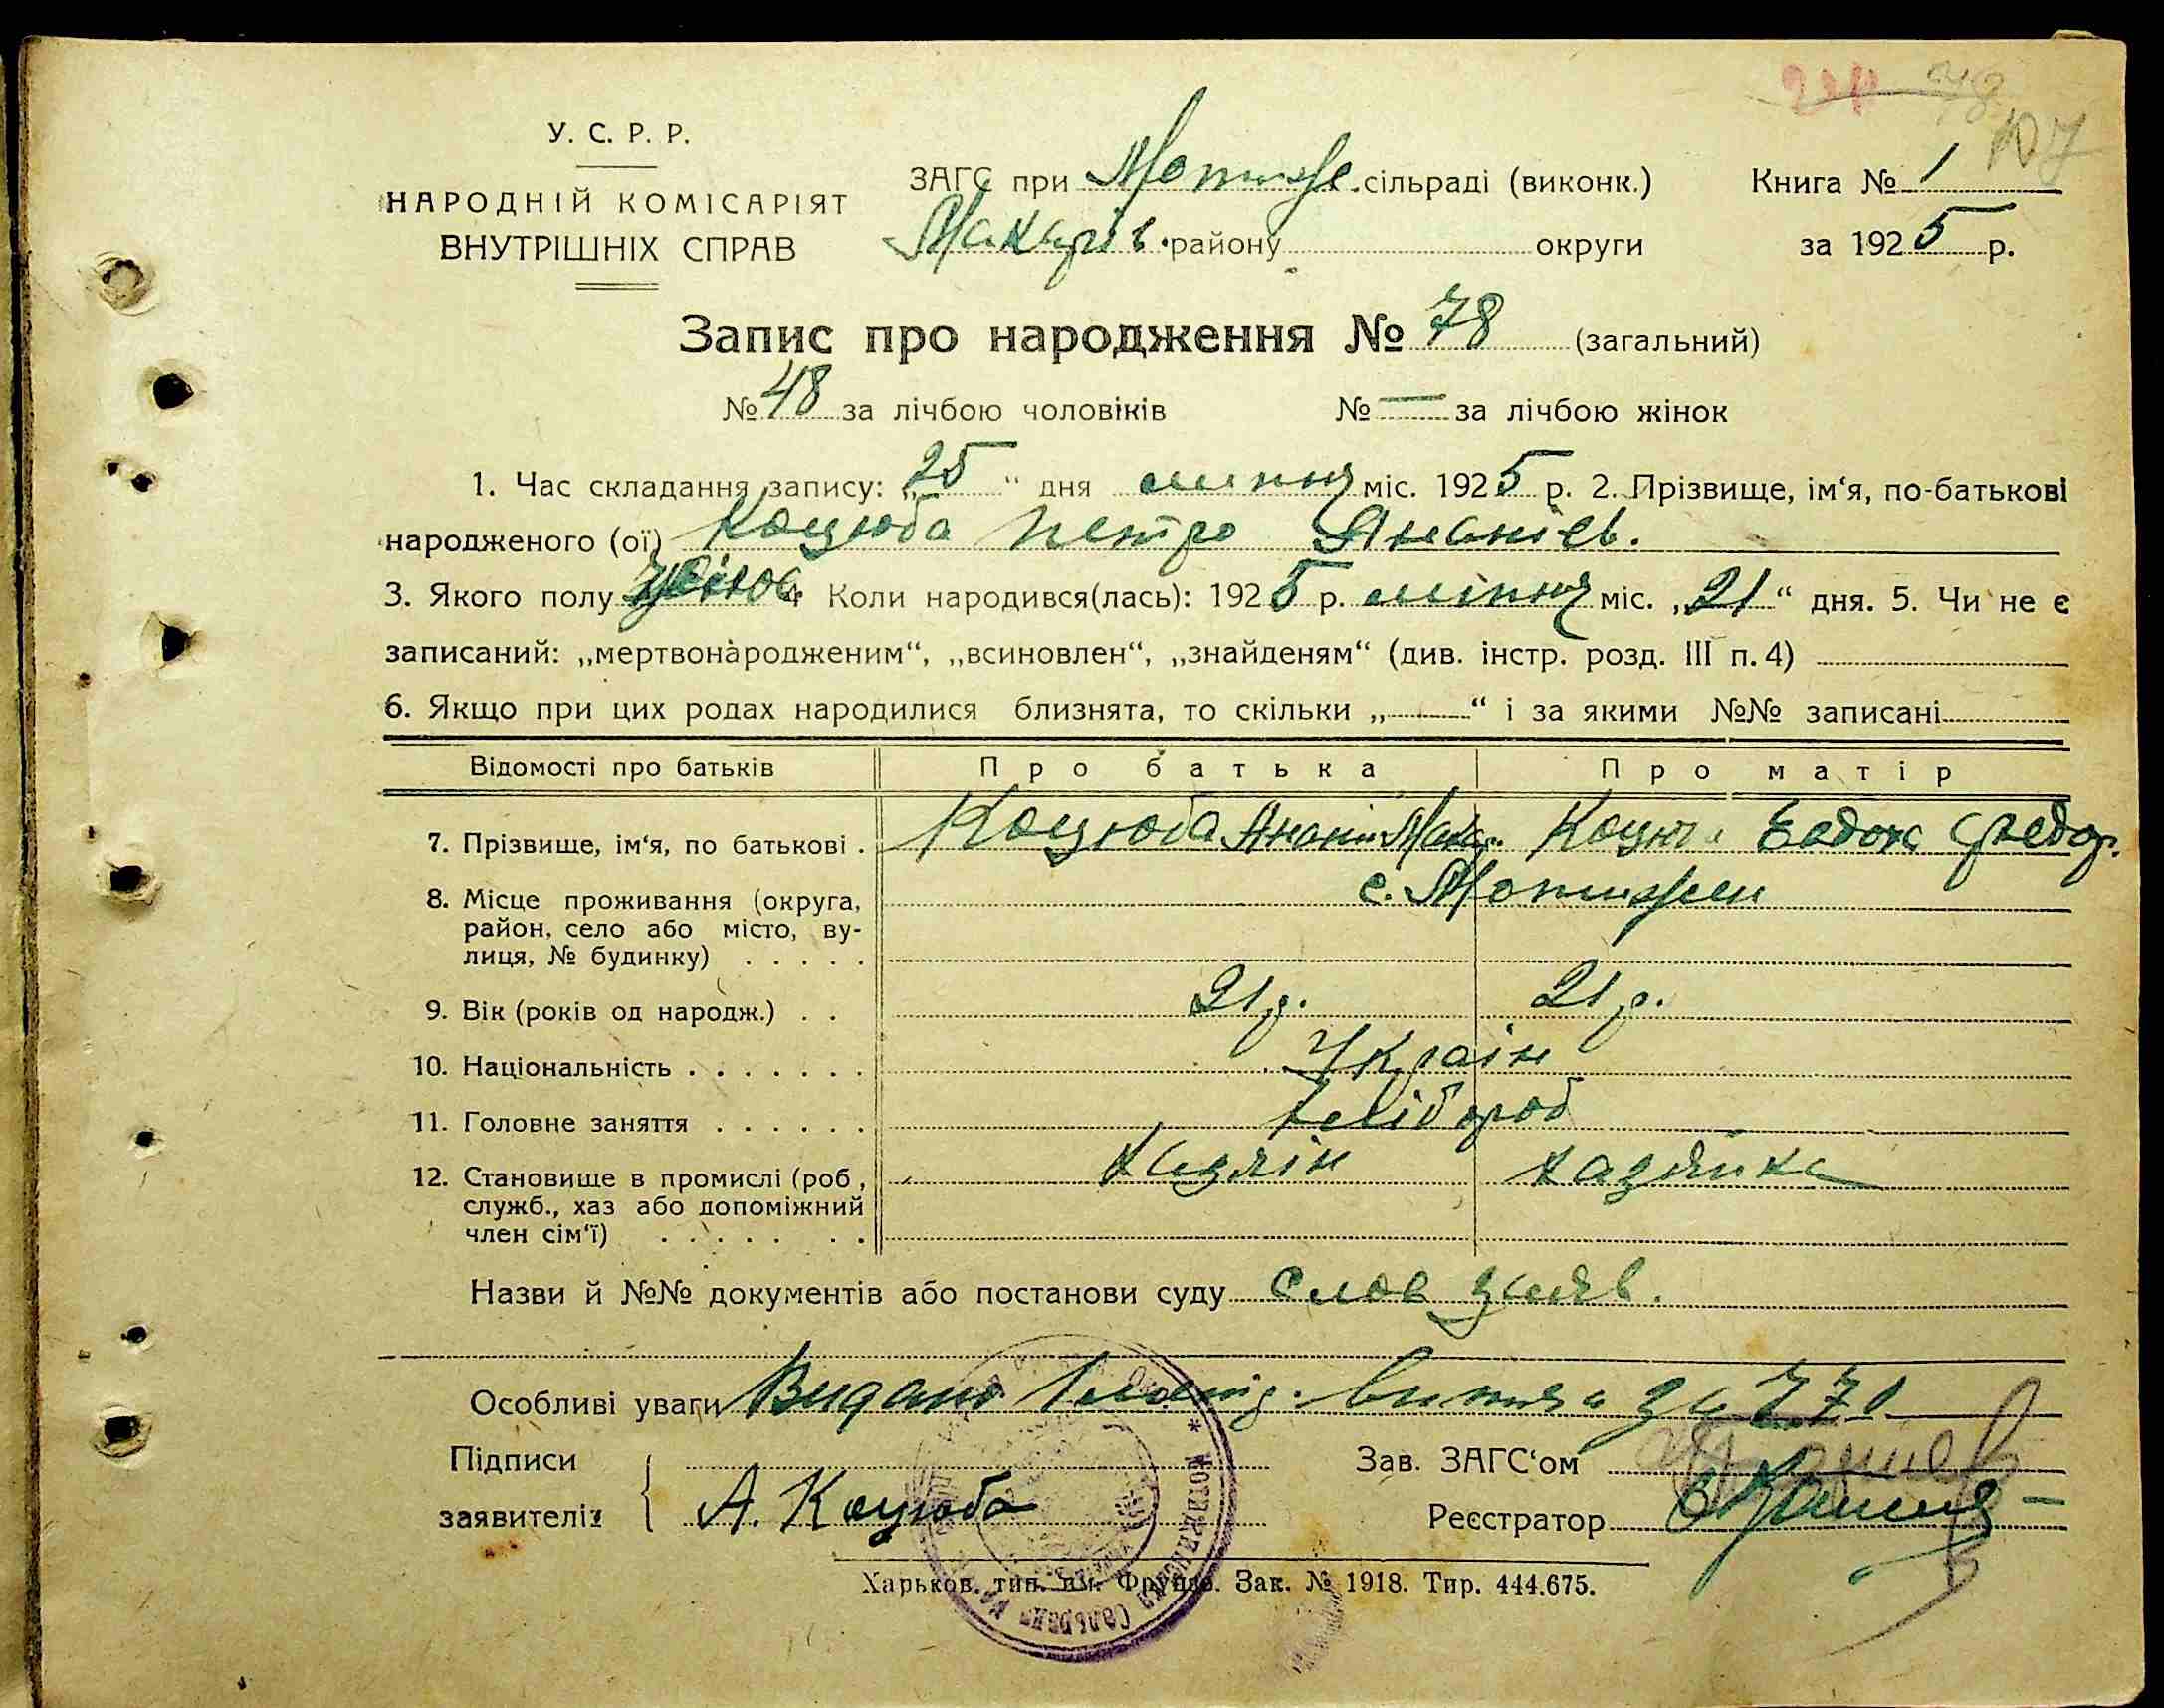 107
У. С. Р. Р.
НАРОДНІЙ КОМІСАРІЯТ
ВНУТРІШНІХ СПРАВ
ЗАГС при Мотиж. сільраді (виконк.) Книга № 1
Макарів. району округи за 1925 р.
Запис про народження № 78 (загальний)
№ 48 за лічбою чоловіків № — за лічбою жінок
1. Час складання запису: „25“ дня липня міс. 1925 р. 2. Прізвище, ім‘я, по-батькові
народженого (ої) Коцюба Петро Ананіїв.
3. Якого полу 4. Коли народився(лась): 1925 р. липня міс. „21“ дня. 5. Чи не є
записаний: „мертвонародженим“, „всиновлен“, „знайденям“ (див. інстр. розд. III п. 4)
6. Якщо при цих родах народилися близнята, то скільки „—“ і за якими №№ записані
Відомості про батьків Про батька Про матір
7. Прізвище, ім‘я, по батькові . Коцюба Ананій Макар. Коцюб Евдок Федор.
8. Місце проживання (округа, с. Мотижин
район, село або місто, ву-
лиця, № будинку) . . . . .
9. Вік (років од народж.) . . 21 р. 21 р.
10. Національність . . . . . . . Україн
11. Головне заняття . . . . . . хлібороб
12. Становище в промислі (роб, хазяїн хазяйка
служб., хаз або допоміжний
член сім‘ї) . . . . . . .
Назви й №№ документів або постанови суду слов заяв.
Особливі уваги Видано за 770
Підписи Зав. ЗАГС‘ом
заявителів А. Коцюба Реєстратор
Харьков. тип. им. Фрунзе. Зак. № 1918. Тир. 444.675.